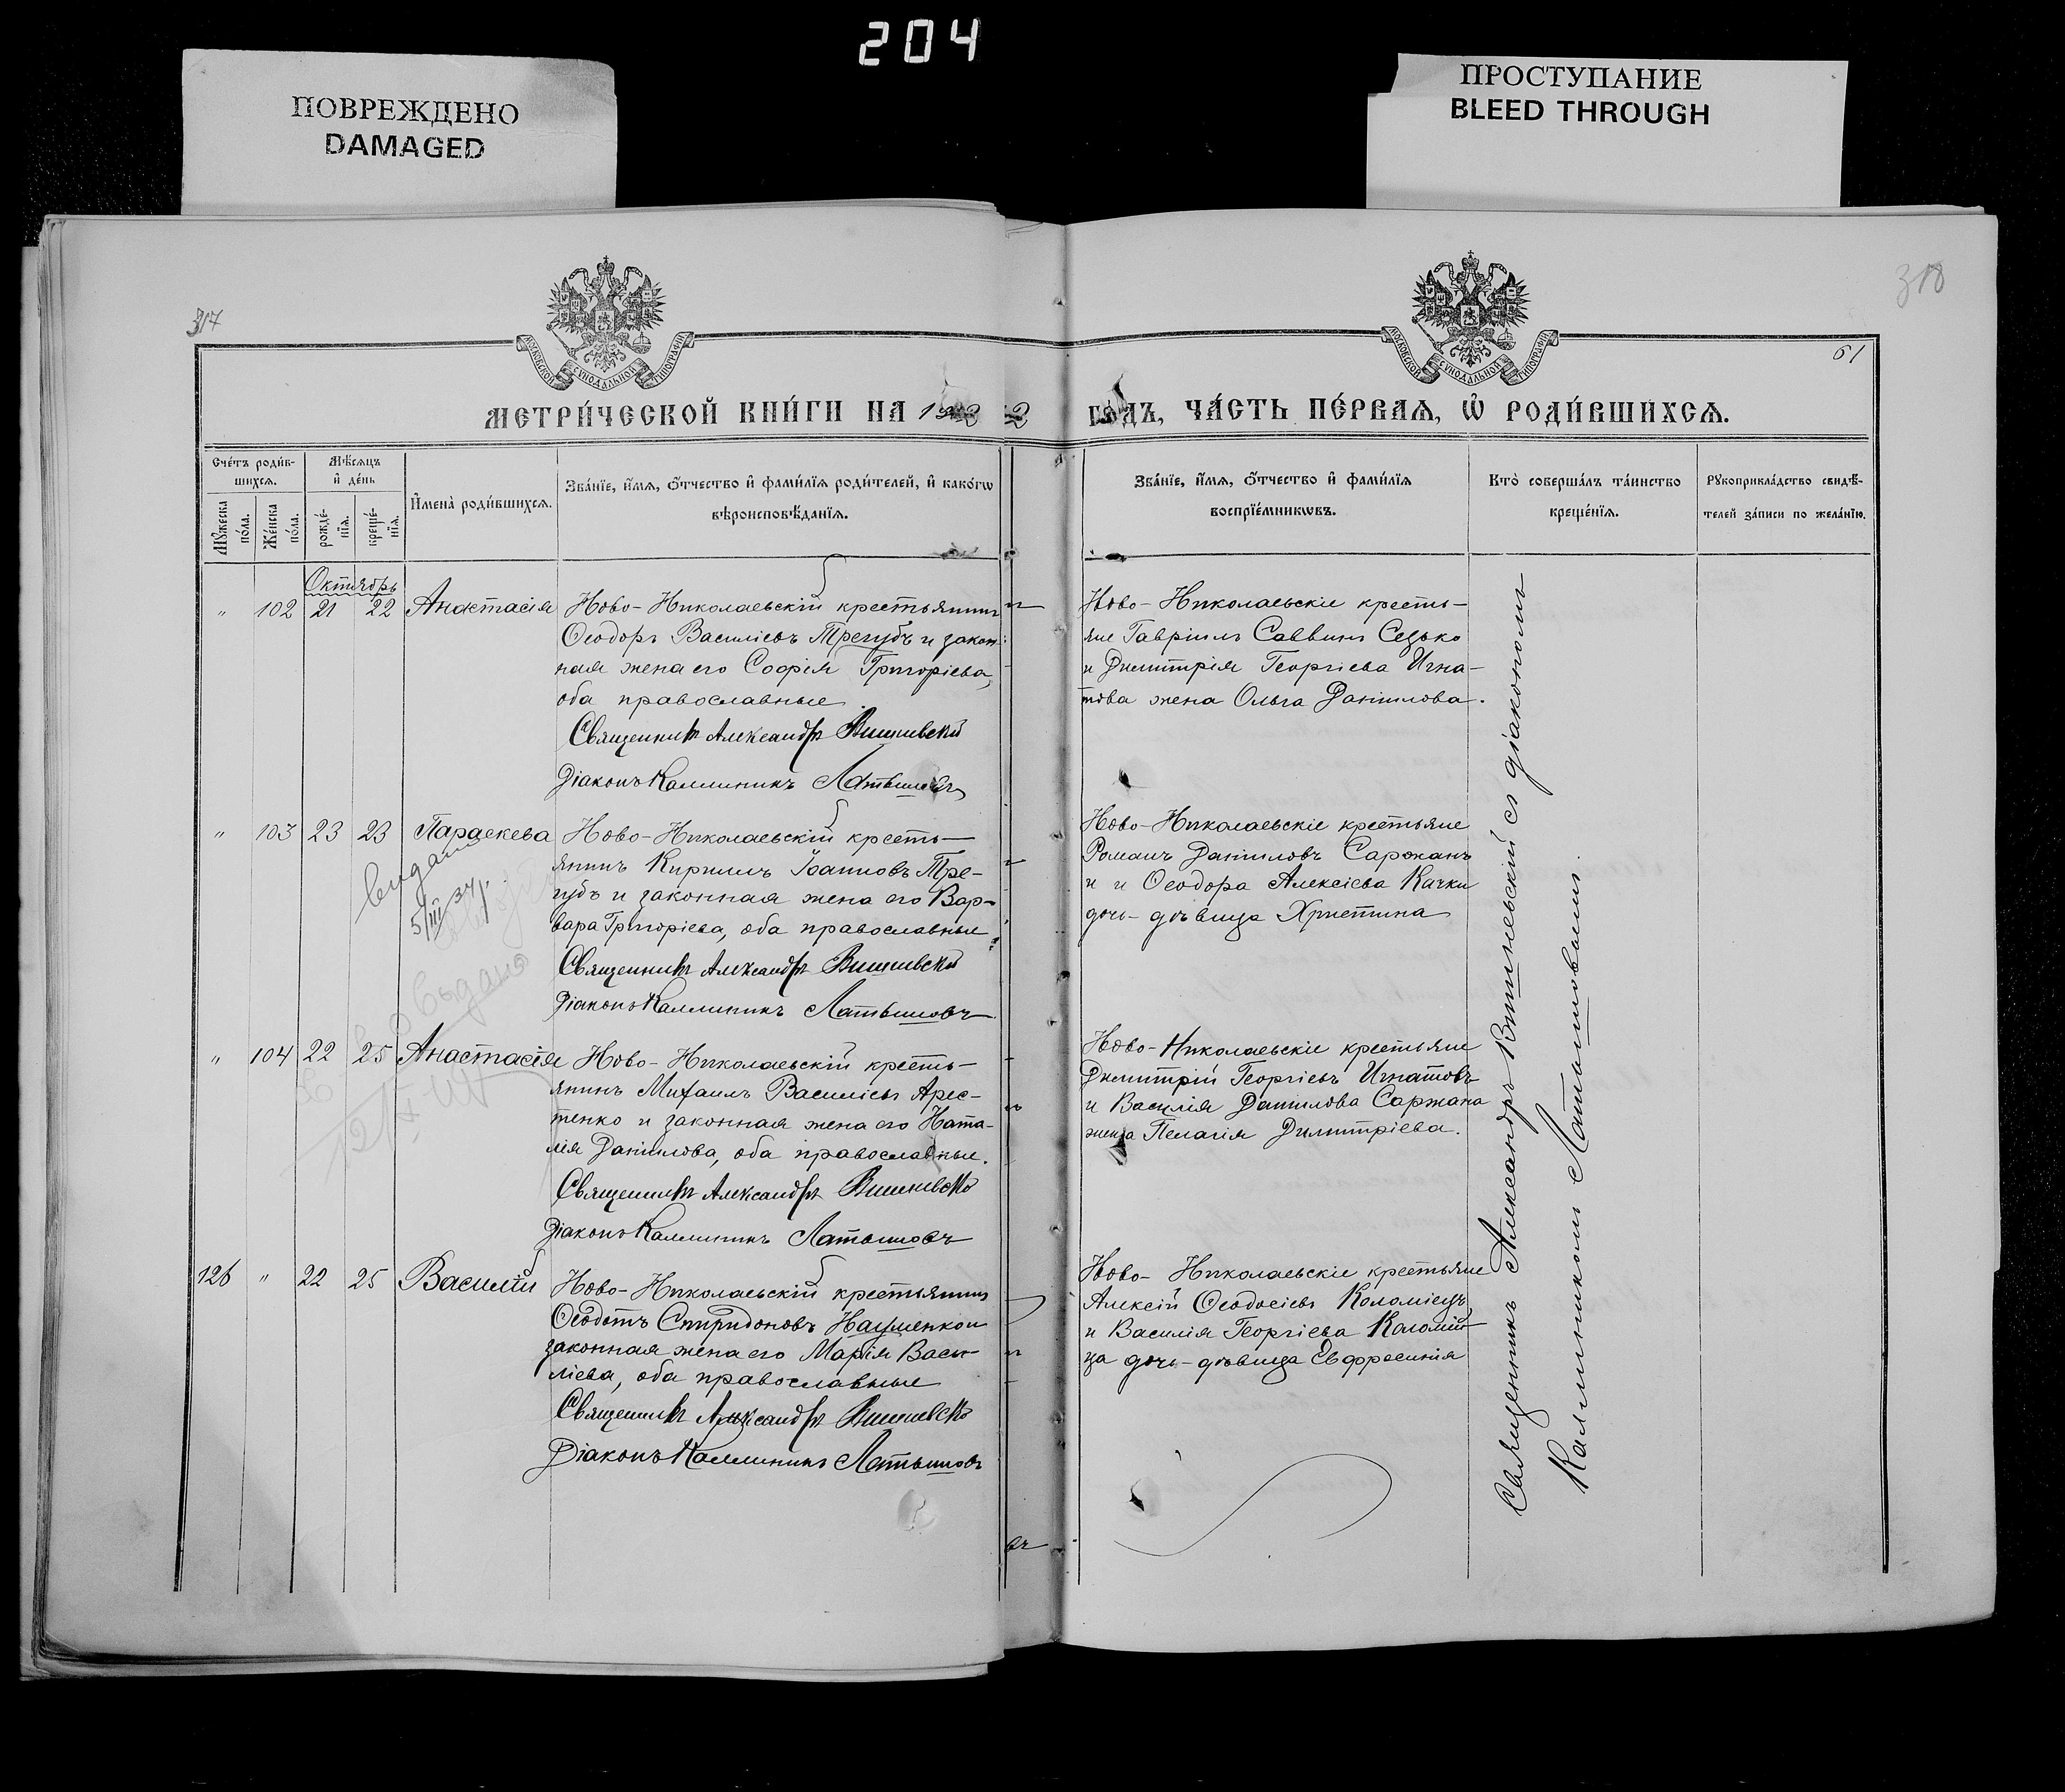 204
ПОВРЕЖДЕНО
DAMAGED
ПРОСТУПАНИЕ
BLEED THROUGH
317
318
МОСКОВСКОЙ СѴНОДАЛЬНОЙ ТИПОГРАФІИ
МОСКОВСКОЙ СѴНОДАЛЬНОЙ ТИПОГРАФІИ
61
МЕТРИ́ЧЕСКОЙ КНИ́ГИ НА
ГО́ДЪ, ЧА́СТЬ ПЕ́РВАѦ, Ѽ РОДИ́ВШИХСѦ.
Сче́тъ роди́в-
шихсѧ.
Мꙋ́жеска по́ла.
Же́нска по́ла.
Мѣ́сѧцъ и҆ де́нь
рожде́-
нїѧ.
креще́-
нїѧ.
И҆мена̀ роди́вшихсѧ.
Зва́нїе, и҆́мѧ, ѻ҆́тчество и҆ фами́лїѧ роди́телей, и҆ како́гѡ
вѣроисповѣ́данїѧ.
Зва́нїе, и҆́мѧ, ѻ҆́тчество и҆ фами́лїѧ
воспрїе́мникѡвъ.
Кто̀ соверша́лъ та́инство
креще́нїѧ.
Рꙋкоприкла́дство свидѣ́-
телей за́писи по жела́нїю.
Октябрь
" 102 21 22 Анастасія
Ново-Николаевскій крестьянинъ
Ѳеодоръ Василіевъ Трегубъ и закон-
ная жена его Софія Григоріева,
оба православные.
Священникъ Александръ Вишневскій
Діаконъ Каллиникъ Латышовъ
Ново-Николаевскіе кресть-
яне Гавріилъ Саввинъ Седько
и Димитрія Георгіева Игна-
това жена Ольга Даніилова.
" 103 23 23 Параскева
видано
5/III 34 г.
Ново-Николаевскій кресть-
янинъ Кириллъ Іоанновъ Тре-
губъ и законная жена его Вар-
вара Григоріева, оба православные
Священникъ Александръ Вишневскій
Діаконъ Каллиникъ Латышовъ
Ново-Николаевскіе крестьяне
Романъ Даніиловъ Саржанъ
и и Ѳеодора Алексіева Качки
дочь-дѣвица Христина
Выдано
" 104 22 25 Анастасія
Ново-Николаевскій кресть-
янинъ Михаилъ Василіевъ Арес-
тенко и законная жена его Ната-
лія Даніилова, оба православные.
Священникъ Александръ Вишневскій
Діаконъ Каллиникъ Латышовъ
Ново-Николаевскіе крестьяне
Димитрій Георгіевъ Игнатовъ
и Василія Даніилова Саржана
жена Пелагія Димитріева.
126 " 22 25 Василій
Ново-Николаевскій крестьянинъ
Ѳеодотъ Спиридоновъ Науменко и
законная жена его Марія Васи-
ліева, оба православные
Священникъ Александръ Вишневскій
Діаконъ Каллиникъ Латышовъ
Ново-Николаевскіе крестьяне
Алексій Ѳеодосіевъ Коломіецъ
и Василія Георгіева Коломій-
ца дочь-дѣвица Евфросинія
Священникъ Александръ Вишневскій съ діакономъ
Каллиникомъ Латышовымъ.